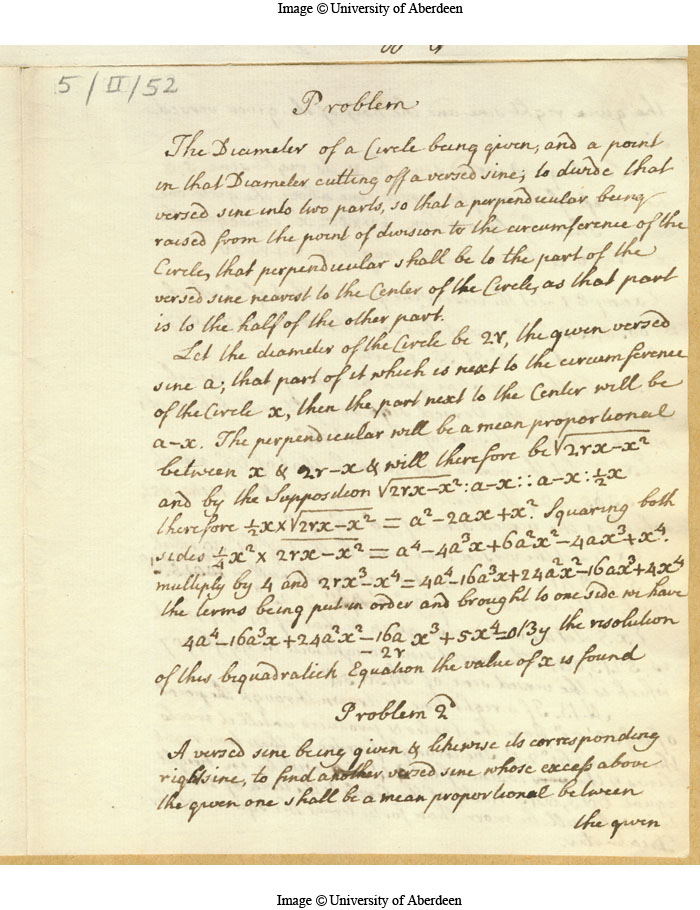 Image © University of Aberdeen
5/II/52
Problem
The Diameter of a Circle being given, and a point
in that Diameter cutting off a versed sine; to divide that
versed sine into two parts, so that a perpendicular being
raised from the point of division to the circumference of the
Circle, that perpendicular shall be to the part of the
versed sine nearest to the Center of the Circle, as that part
is to the half of the other part.
Let the diameter of the Circle be 2r, the given versed
sine a; that part of it which is next to the circumference
of the Circle x, then the part next to the Center will be
a-x. The perpendicular will be a mean proportional
between x & 2r-x & will therefore be √2rx-x²
and by the Supposition √2rx-x² : a-x :: a-x : ½x
therefore ½x×√2rx-x² = a²-2ax+x² Squaring both
sides ¼x² × 2rx-x² = a⁴-4a³x+6a²x²-4ax³+x⁴.
multiply by 4 and 2rx³-x⁴=4a⁴-16a³x+24a²x²-16ax³+4x⁴
the terms being put in order and brought to one side we have
4a⁴-16a³x+24a²x²-16a x³+5x⁴=0 By the resolution
-2r
of this biquadratick Equation the value of x is found
Problem 2d
A versed sine being given & likewise its corresponding
right sine, to find another versed sine whose excess above
the given one shall be a mean proportional between
the given
Image © University of Aberdeen